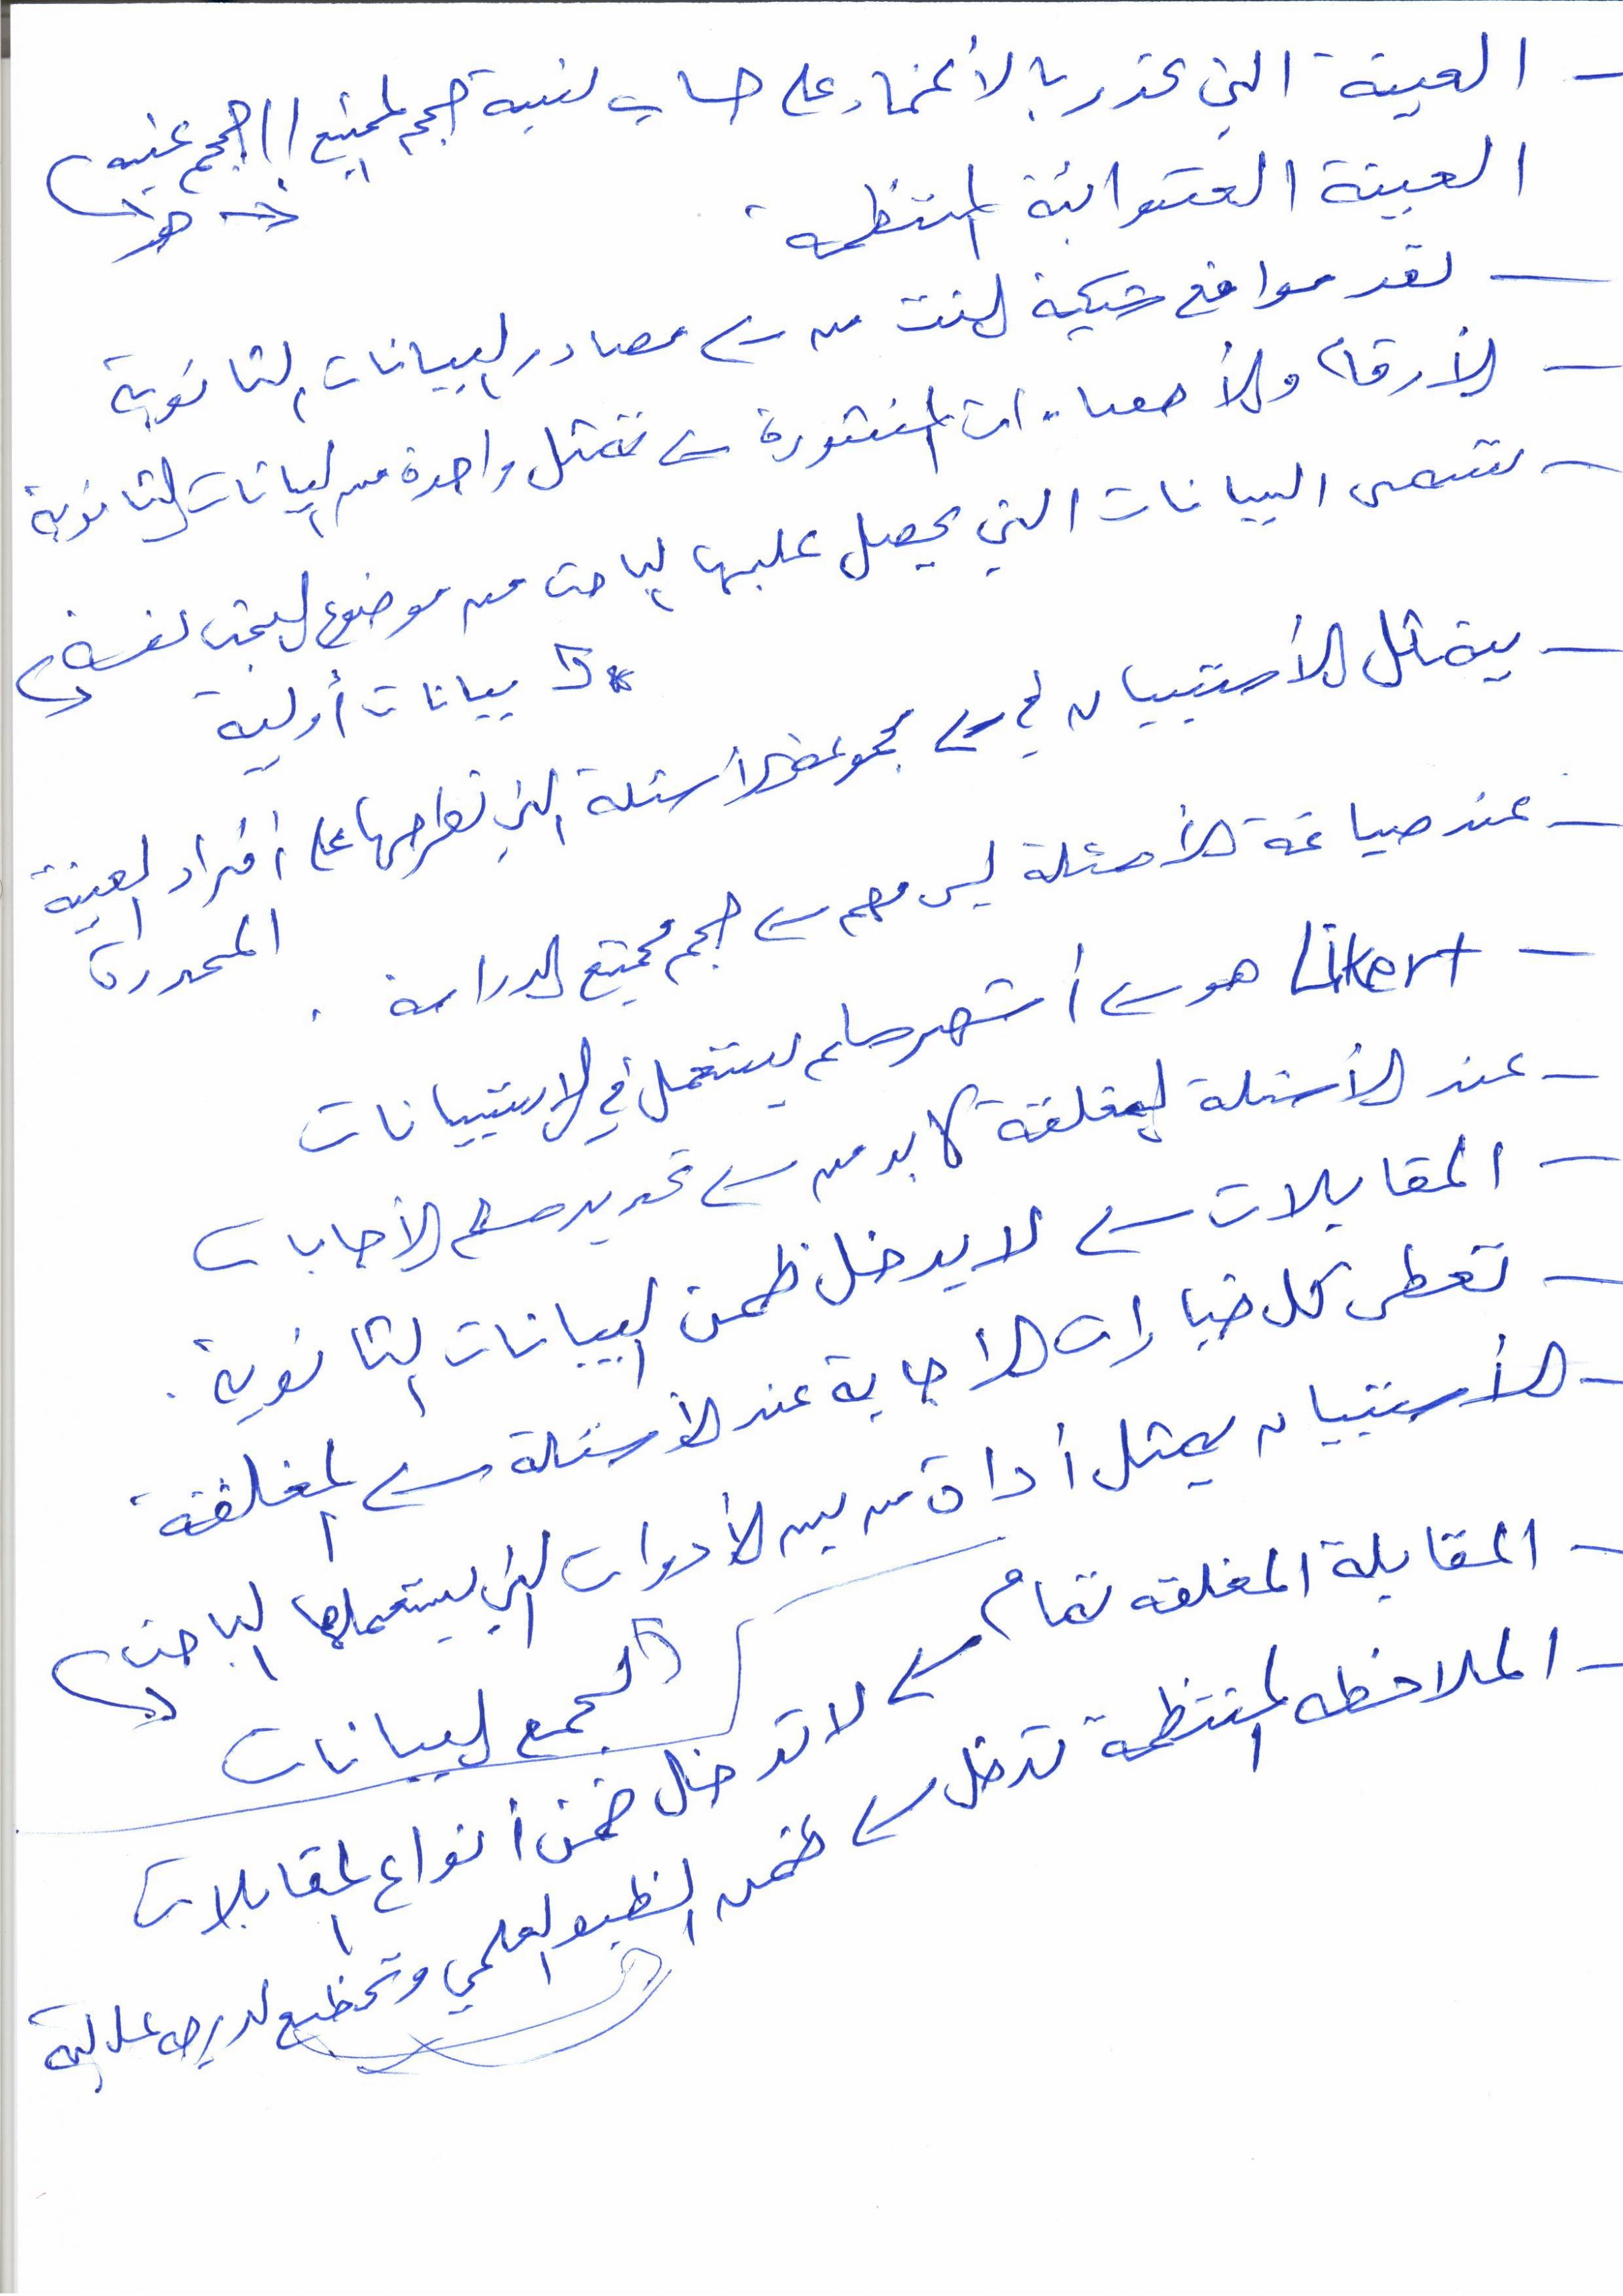 - العينة التي تحدد بالأعتماد على حساب نسبة حجم المجتمع الى حجم عينه
هو
العينة العشوائية المنتظمة
- تعد مواقع شبكية النت من ← مصادر البيانات الثانوية
- الأرقام والأحصاءات المنشورة ← تمثل واحدة من البيانات الثانوية
- تسمى البيانات التي يحصل عليها الباحث من موضوع البحث نفسه
بيانات أولية
- يتمثل الأستبيان في ← مجموعة الأسئلة التي تطرحها على أفراد العينة
المحددة
- عند صياغة الأسئلة ليس مهم ← حجم مجتمع الدراسة .
- Likert هو ← أشهر سلم يستعمل في الاستبيانات
- عند الأسئلة المغلقة لا بد من ← تحديد سلم الأجابات
- المقابلات ← لا يدخل ظمن البيانات الثانوية .
- تعطى كل خيارات الاجابة عند الأسئلة ← المغلقة
- الأستبيان يمثل أداة من بين الأدوات التي يستعملها الباحث
لجمع البيانات
- المقابلة المغلقه تمام ← لا تدخل ضمن أنواع المقابلات
- الملاحظه المنتظمة تدخل ← ضمن العلمي وتخظع لدرجه عاليه